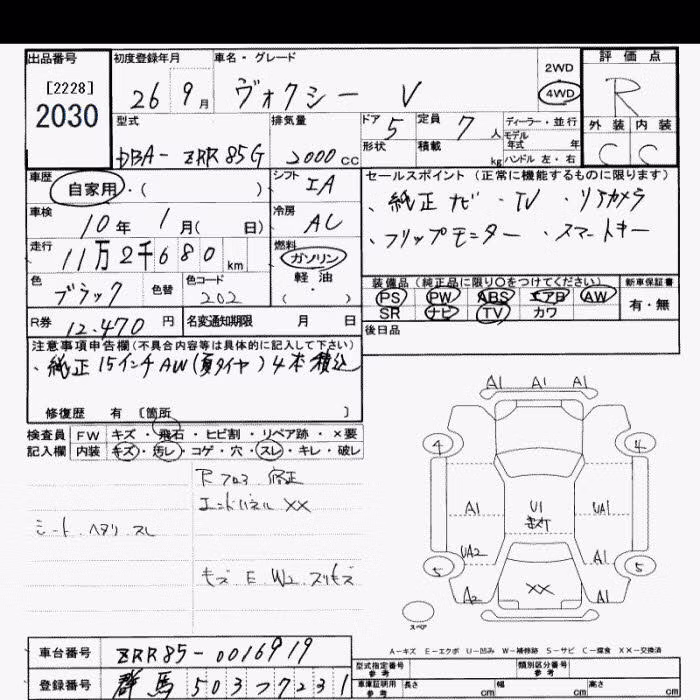 出品番号 初度登録年月 車名・グレード 評価点
[2228]
2030
26 9月 ヴォクシー V 2WD 4WD R
型式 排気量 ドア 定員 ディーラー・並行 外装 内装
DBA-ZRR85G 2000cc 5 7人 モデル年式 年 C C
形状 積載 kg ハンドル 左・右
車歴 自家用・( ) シフト IA
セールスポイント (正常に機能するものに限ります)
、純正ナビ ・TV ・リアカメラ
・フリップモニター ・スマートキー
車検 10年 1月( 日) 冷房 AC
走行 11万2千680km 燃料 ガソリン・軽油・( )
色 ブラック 色替 色コード 202
装備品 (純正品に限り○をつけてください) 新車保証書
PS PW ABS エアB AW 有・無
SR ナビ TV カワ
R券 12.470円 名変通知期限 月 日
後日品
注意事項申告欄(不具合内容等は具体的に記入して下さい)
・純正15インチAW(夏タイヤ)4本積込
修復歴 有 〔箇所 〕
検査員記入欄 FW キズ・飛石・ヒビ割・リペア跡・×要
内装 キズ・汚レ・コゲ・穴・スレ・キレ・破レ
修正
エンドパネル XX
シート ヘタリ スレ
A1 A1 A1
4 4
A1 U1 UA1
UA2 A1
5 5
A2 XX A1
スペア
A-キズ E-エクボ U-凹み W-補修跡 S-サビ C-腐食 XX-交換済
車台番号 ZRR85-0016919
登録番号 群馬503ｽ7231
型式指定番号 参考 類別区分番号 参考
車庫証明用 参考 長さ cm 幅 cm 高さ cm